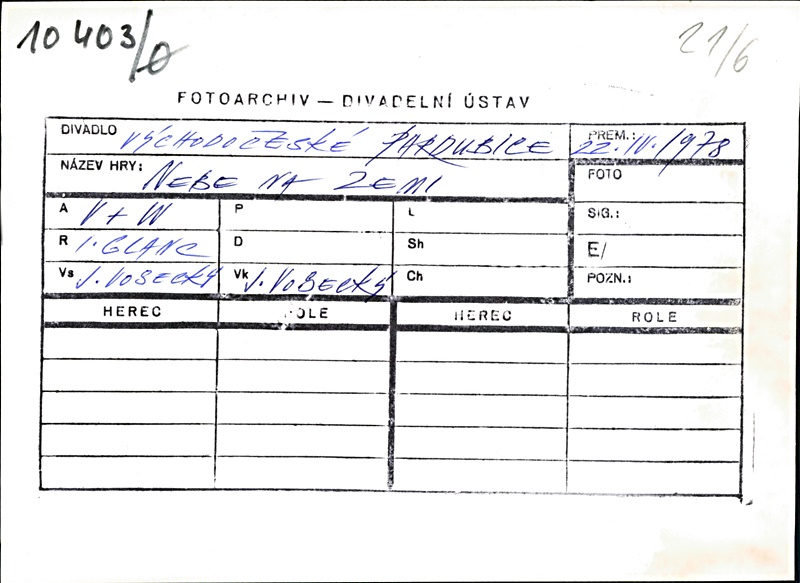 10403/0
21/6
FOTOARCHIV — DIVADELNÍ ÚSTAV
DIVADLO VÝCHODOČESKÉ PARDUBICE PREM.: 22.IV./1978
NÁZEV HRY: NEBE NA ZEMI FOTO
A V + W P L SIG.:
R I. GLANC D Sh E/
Vs J. VOSECKÝ Vk J. VOSECKÝ Ch POZN.:
HEREC ROLE HEREC ROLE